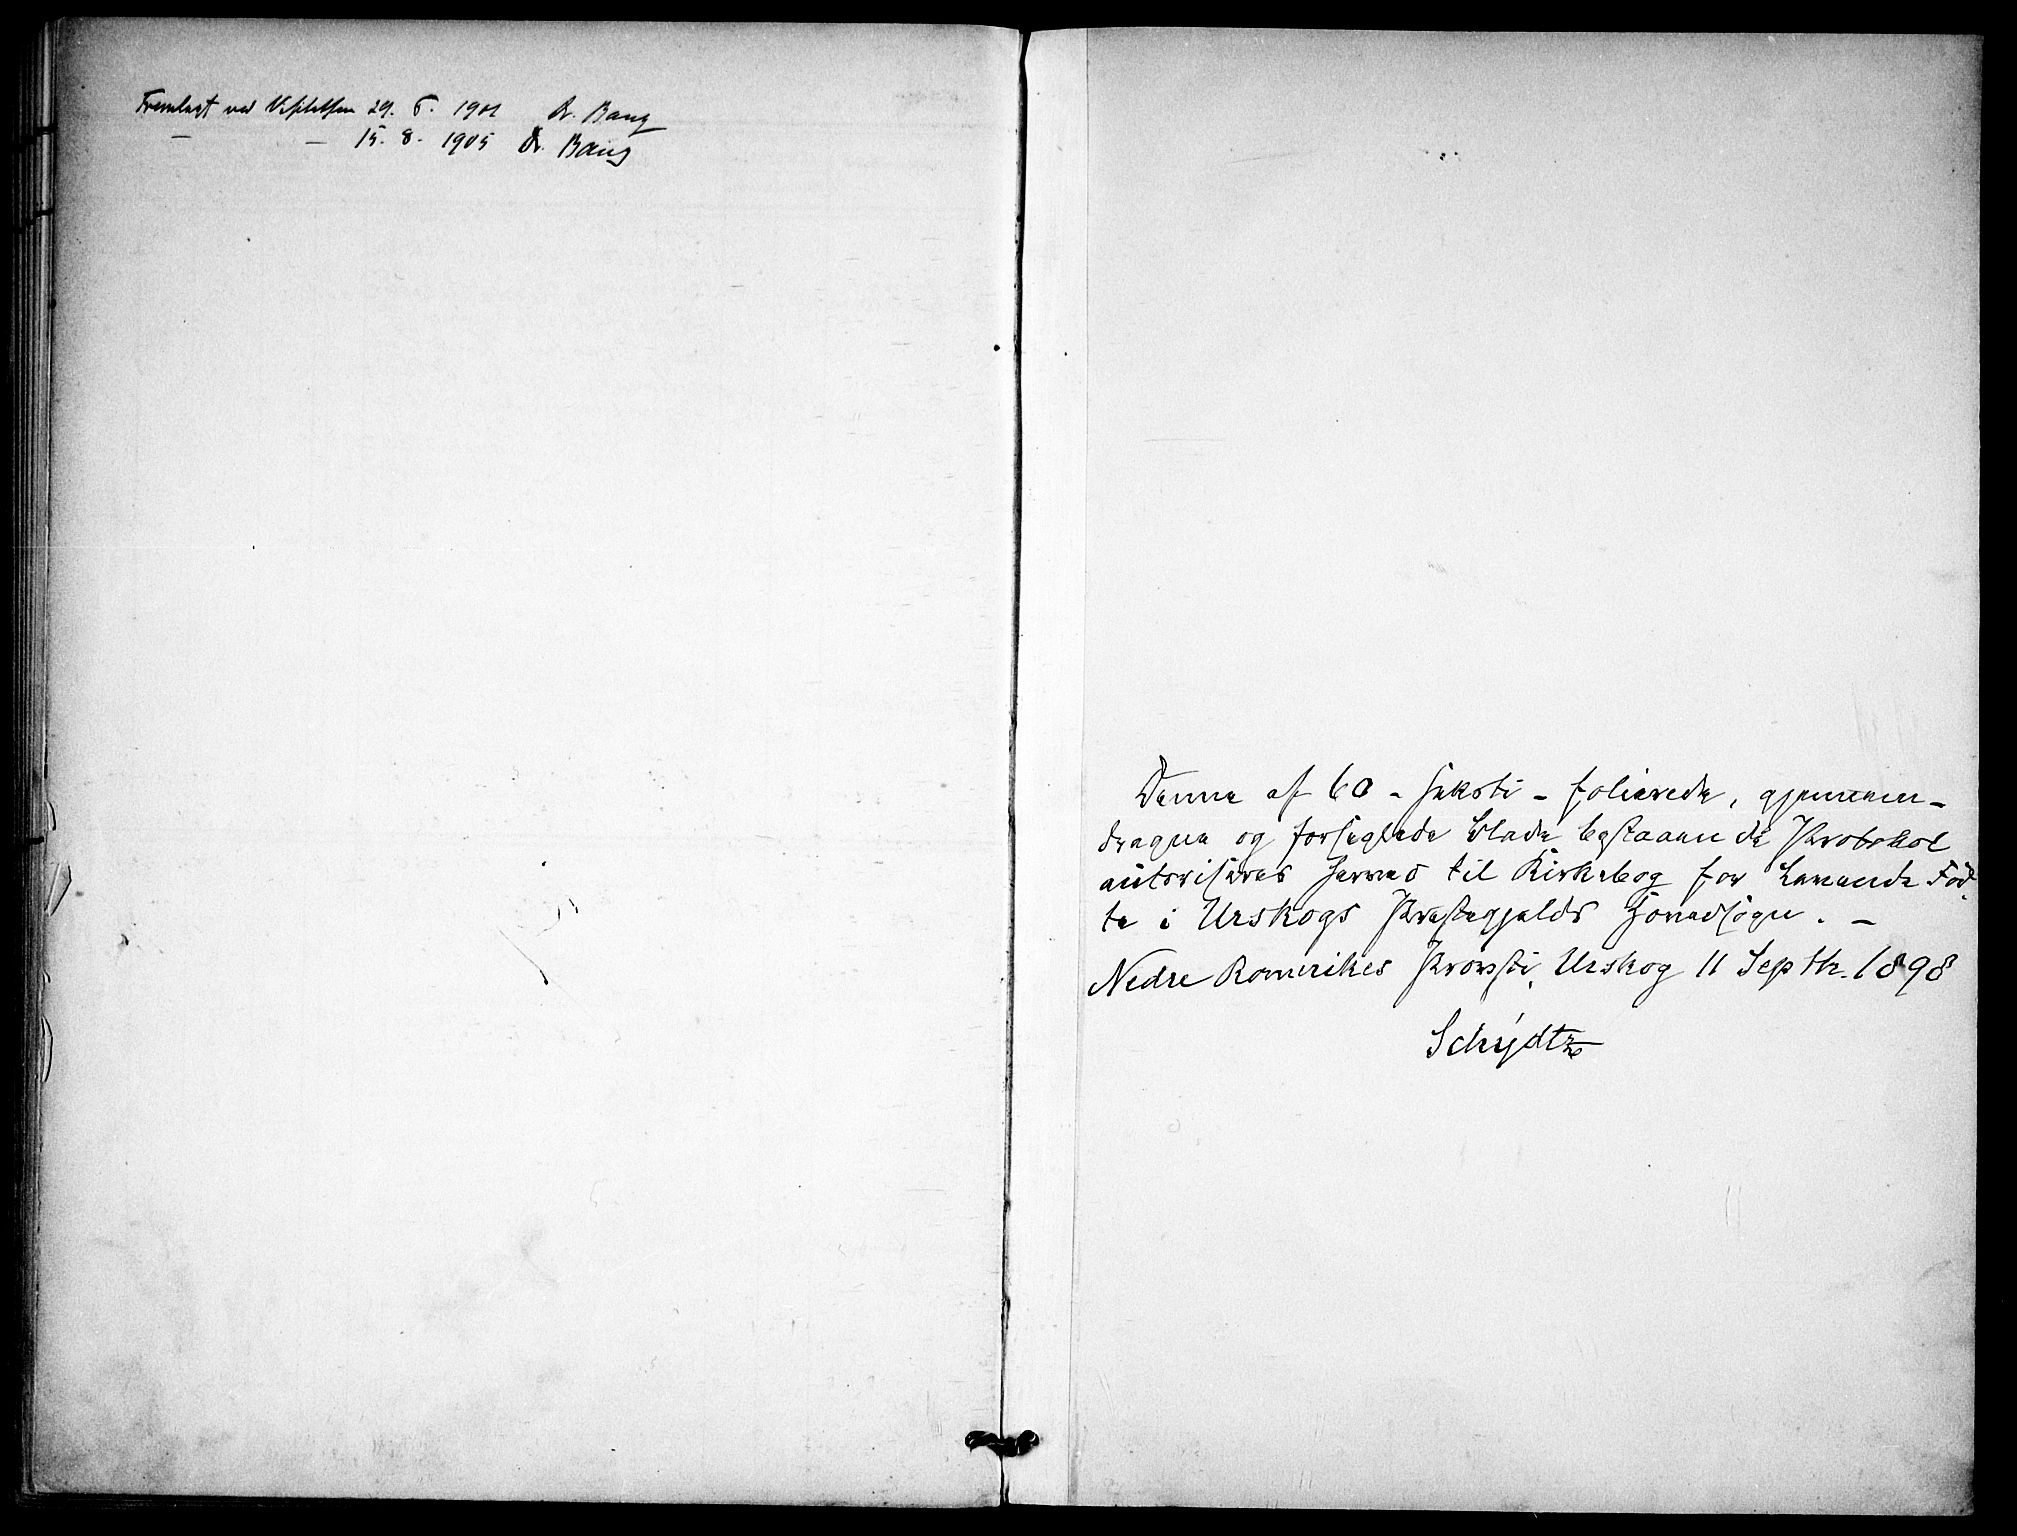 Fremlagt ved Visitatsen 29. 6. 1901 Dr. Bang
— — 15. 8. 1905 Dr. Bang
Denne af 60 - seksti - folierede, gjennem-
dragne og forseglede Blade bestaaende Protokol
autoriseres herved til Kirkebog for Levende Fød-
te i Urskogs Præstegjelds Hovedsogn. —
Nedre Romerikes Provsti, Urskog 11 Septbr. 1898
Schydtz